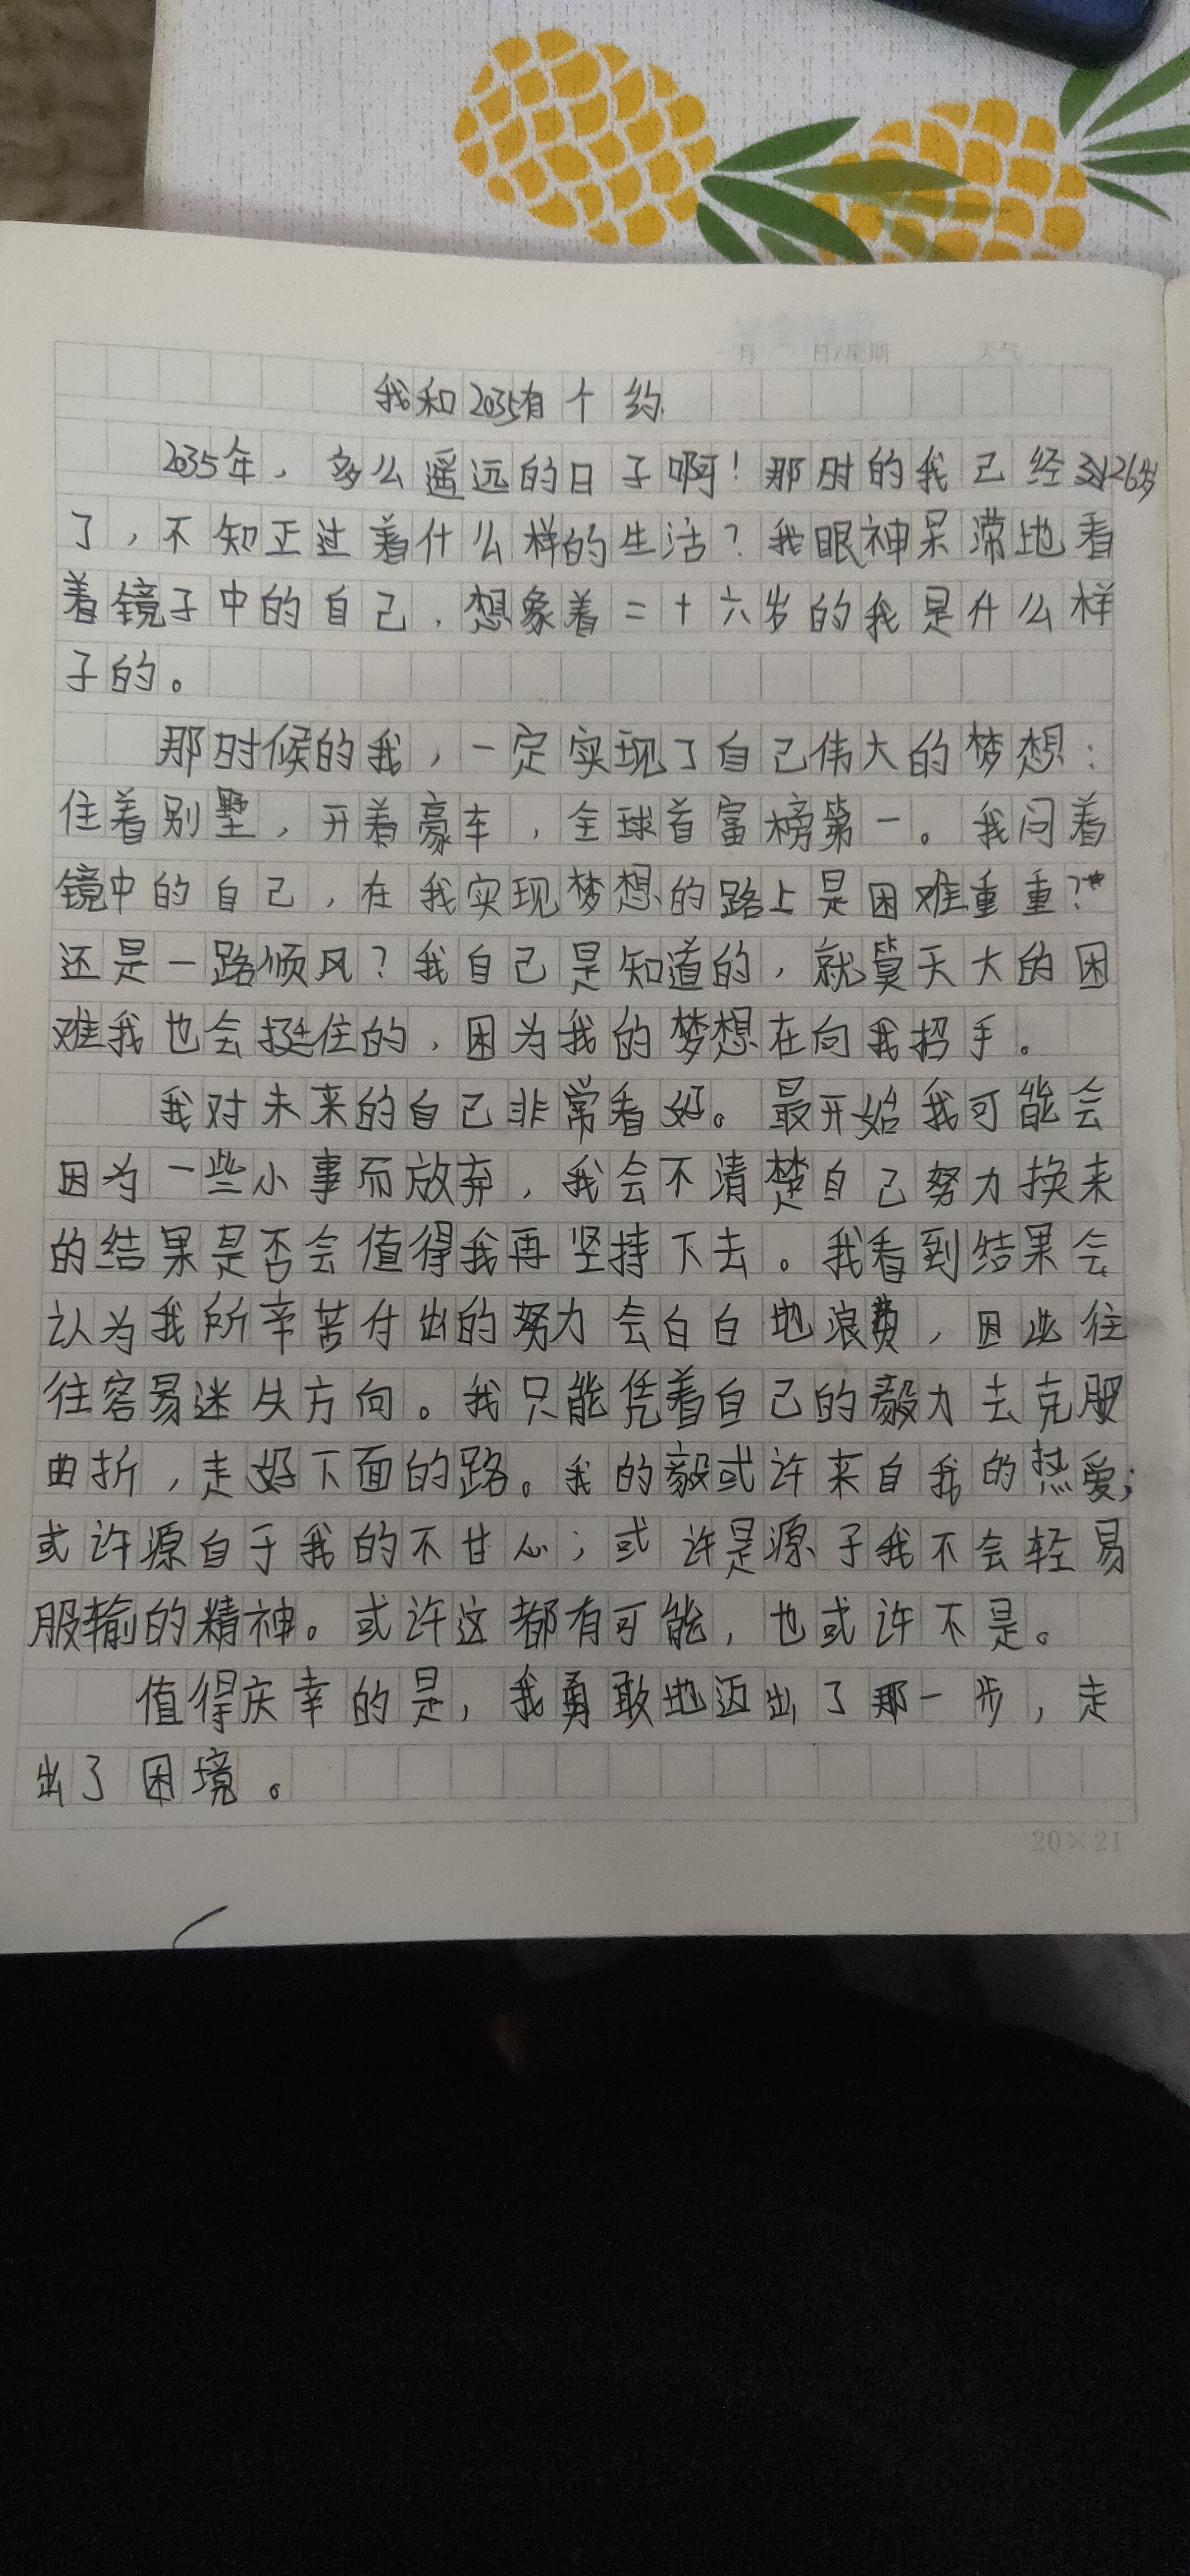 月 日/星期 天气
我和2035有个约
2035年，多么遥远的日子啊！那时的我已经26岁
了，不知正过着什么样的生活？我眼神呆滞地看
着镜子中的自己，想象着二十六岁的我是什么样
子的。
那时候的我，一定实现了自己伟大的梦想：
住着别墅，开着豪车，全球首富榜第一。我问着
镜中的自己，在我实现梦想的路上是困难重重？
还是一路顺风？我自己是知道的，就算天大的困
难我也会挺住的，因为我的梦想在向我招手。
我对未来的自己非常看好。最开始我可能会
因为一些小事而放弃，我会不清楚自己努力换来
的结果是否会值得我再坚持下去。我看到结果会
认为我所辛苦付出的努力会白白地浪费，因此往
往容易迷失方向。我只能凭着自己的毅力去克服
曲折，走好下面的路。我的毅或许来自我的热爱；
或许源自于我的不甘心；或许是源于我不会轻易
服输的精神。或许这都有可能，也或许不是。
值得庆幸的是，我勇敢地迈出了那一步，走
出了困境。
20×21